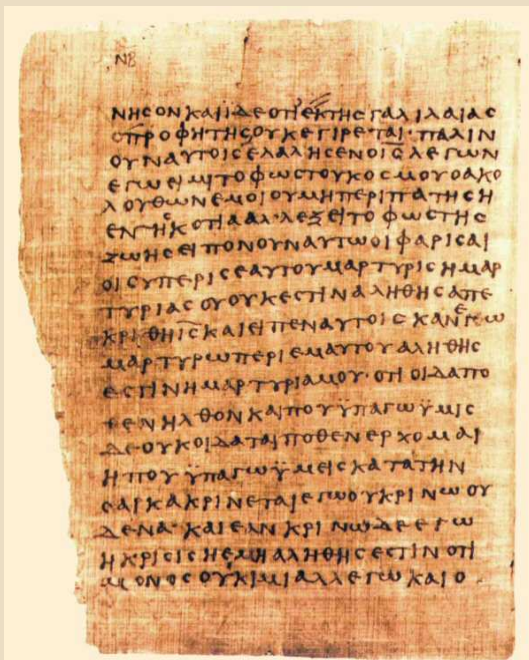 ΝΗ
ΝΗϹΟΝΚΑΙΪΔΕΟΤΙΕΚΤΗϹΓΑΛΙΛΑΙΑϹ
ΟΠΡΟΦΗΤΗϹΟΥΚΕΓΙΡΕΤΑΙ·ΠΑΛΙΝ
ΟΥΝΑΥΤΟΙϹΕΛΑΛΗϹΕΝΟΙ̅Ϲ̅ΛΕΓΩΝ
ΕΓΩΕΙΜΙΤΟΦΩϹΤΟΥΚΟϹΜΟΥΟΑΚΟ
ΛΟΥΘΩΝΕΜΟΙΟΥΜΗΠΕΡΙΠΑΤΗϹΗ
ΕΝΤΗϹΚΟΤΙΑΑΛΛΕΞΕΙΤΟΦΩϹΤΗϹ
ΖΩΗϹΕΙΠΟΝΟΥΝΑΥΤΩΟΙΦΑΡΙϹΑΙ
ΟΙϹΥΠΕΡΙϹΕΑΥΤΟΥΜΑΡΤΥΡΙϹΗΜΑΡ
ΤΥΡΙΑϹΟΥΟΥΚΕϹΤΙΝΑΛΗΘΗϹΑΠΕ
ΚΡΙΘΗΙ̅Ϲ̅ΚΑΙΕΙΠΕΝΑΥΤΟΙϹΚΑΝΕΓΩ
ΜΑΡΤΥΡΩΠΕΡΙΕΜΑΥΤΟΥΑΛΗΘΗϹ
ΕϹΤΙΝΗΜΑΡΤΥΡΙΑΜΟΥ·ΟΤΙΟΙΔΑΠΟ
ΘΕΝΗΛΘΟΝΚΑΙΠΟΥΫΠΑΓΩΫΜΙϹ
ΔΕΟΥΚΟΙΔΑΤΑΙΠΟΘΕΝΕΡΧΟΜΑΙ
ΗΠΟΥΫΠΑΓΩΫΜΕΙϹΚΑΤΑΤΗΝ
ϹΑΡΚΑΚΡΙΝΕΤΑΙΕΓΩΟΥΚΡΙΝΩΟΥ
ΔΕΝΑ·ΚΑΙΕΑΝΚΡΙΝΩΔΕΕΓΩ
ΗΚΡΙϹΙϹΗΕΜΗΑΛΗΘΗϹΕϹΤΙΝΟΤΙ
ΜΟΝΟϹΟΥΚΙΜΙΑΛΛΕΓΩΚΑΙΟ